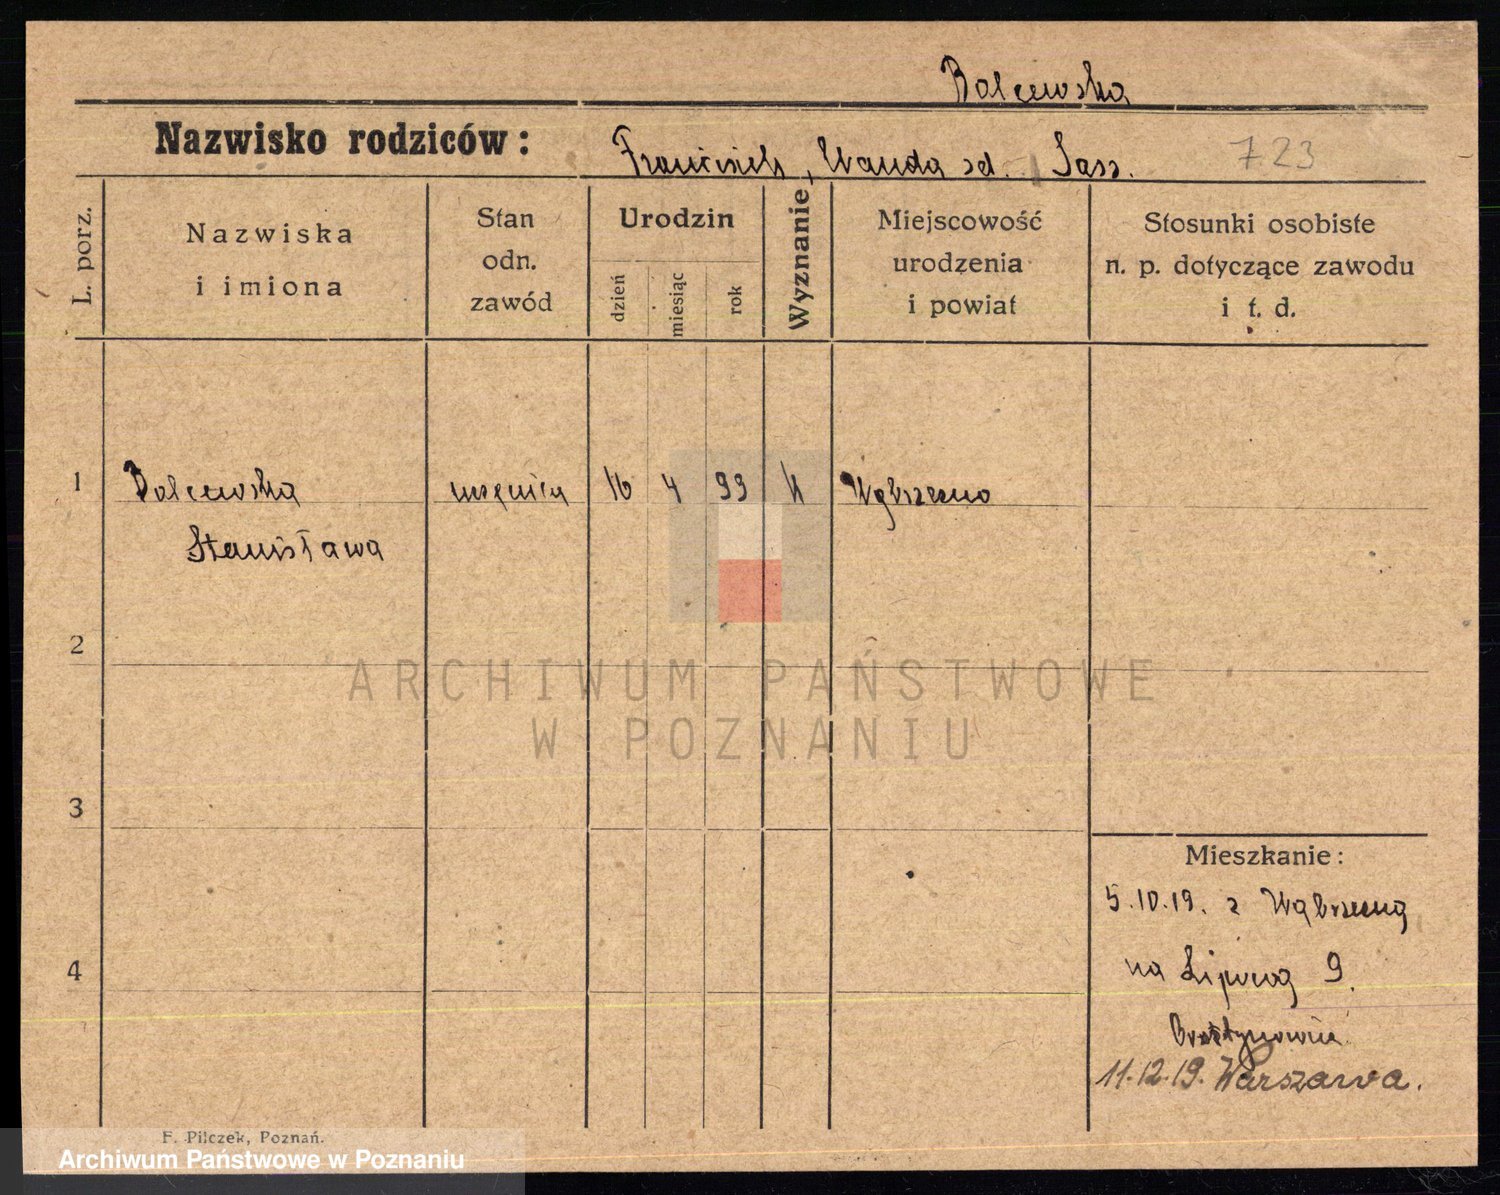 Balcewska
Nazwisko rodziców: Franciszek, Wanda zd. Sass. 723
L. porz.
Nazwiska
i imiona
Stan
odn.
zawód
Urodzin
dzień
miesiąc
rok
Wyznanie
Miejscowość
urodzenia
i powiat
Stosunki osobiste
n. p. dotyczące zawodu
i t. d.
1 Balcewska 16 4 93 k Wąbrzezno
Stanisława
2
ARCHIWUM PAŃSTWOWE
W POZNANIU
3
Mieszkanie:
5.10.19. z Wąbrzezna
4
na Lipową 9.
11.12.19. Warszawa.
F. Pilczek, Poznań.
Archiwum Państwowe w Poznaniu